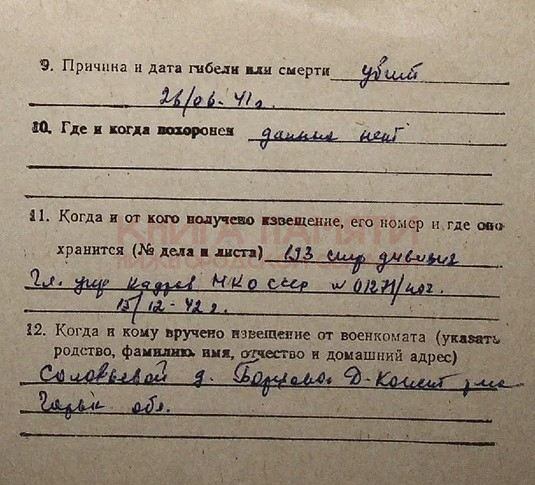 9. Причина и дата гибели или смерти убит
26/06-41 г.
10. Где и когда похоронен данных нет
11. Когда и от кого получено извещение, его номер и где оно
КНИГА ПАМЯТИ
хранится (№ дела и листа) 193 стр дивизия
Гл. упр кадров НКО СССР №01271/
15/12-42 г.
12. Когда и кому вручено извещение от военкомата (указать
родство, фамилию, имя, отчество и домашний адрес)
Соловьевой д. Борцово Д-Констт р-на
Горьк обл.